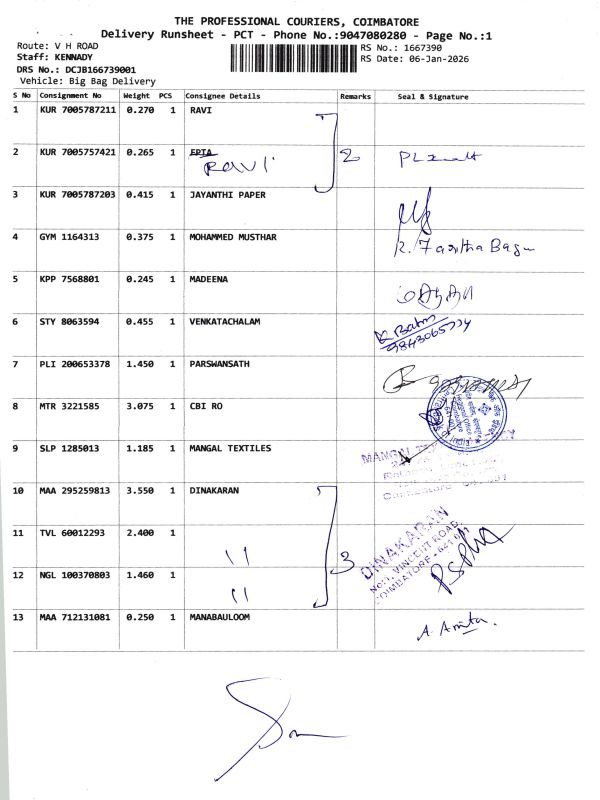 THE PROFESSIONAL COURIERS, COIMBATORE
Delivery Runsheet - PCT - Phone No.:9047080280 - Page No.:1
Route: V H ROAD
Staff: KENNADY
DRS No.: DCJB166739001
Vehicle: Big Bag Delivery
RS No.: 1667390
RS Date: 06-Jan-2026
S No Consignment No Weight PCS Consignee Details Remarks Seal & Signature
1 KUR 7005787211 0.270 1 RAVI
2 KUR 7005757421 0.265 1 EPIA
Ravi
2
3 KUR 7005787203 0.415 1 JAYANTHI PAPER
4 GYM 1164313 0.375 1 MOHAMMED MUSTHAR
5 KPP 7568801 0.245 1 MADEENA
6 STY 8063594 0.455 1 VENKATACHALAM
9843065774
7 PLI 200653378 1.450 1 PARSWANSATH
8 MTR 3221585 3.075 1 CBI RO
9 SLP 1285013 1.185 1 MANGAL TEXTILES
10 MAA 295259813 3.550 1 DINAKARAN
11 TVL 60012293 2.400 1
"
3
DINAKARAN
No:1, VINCENT ROAD,
COIMBATORE - 641 001
12 NGL 100370803 1.460 1
"
13 MAA 712131081 0.250 1 MANABAULOOM
A. Amita.